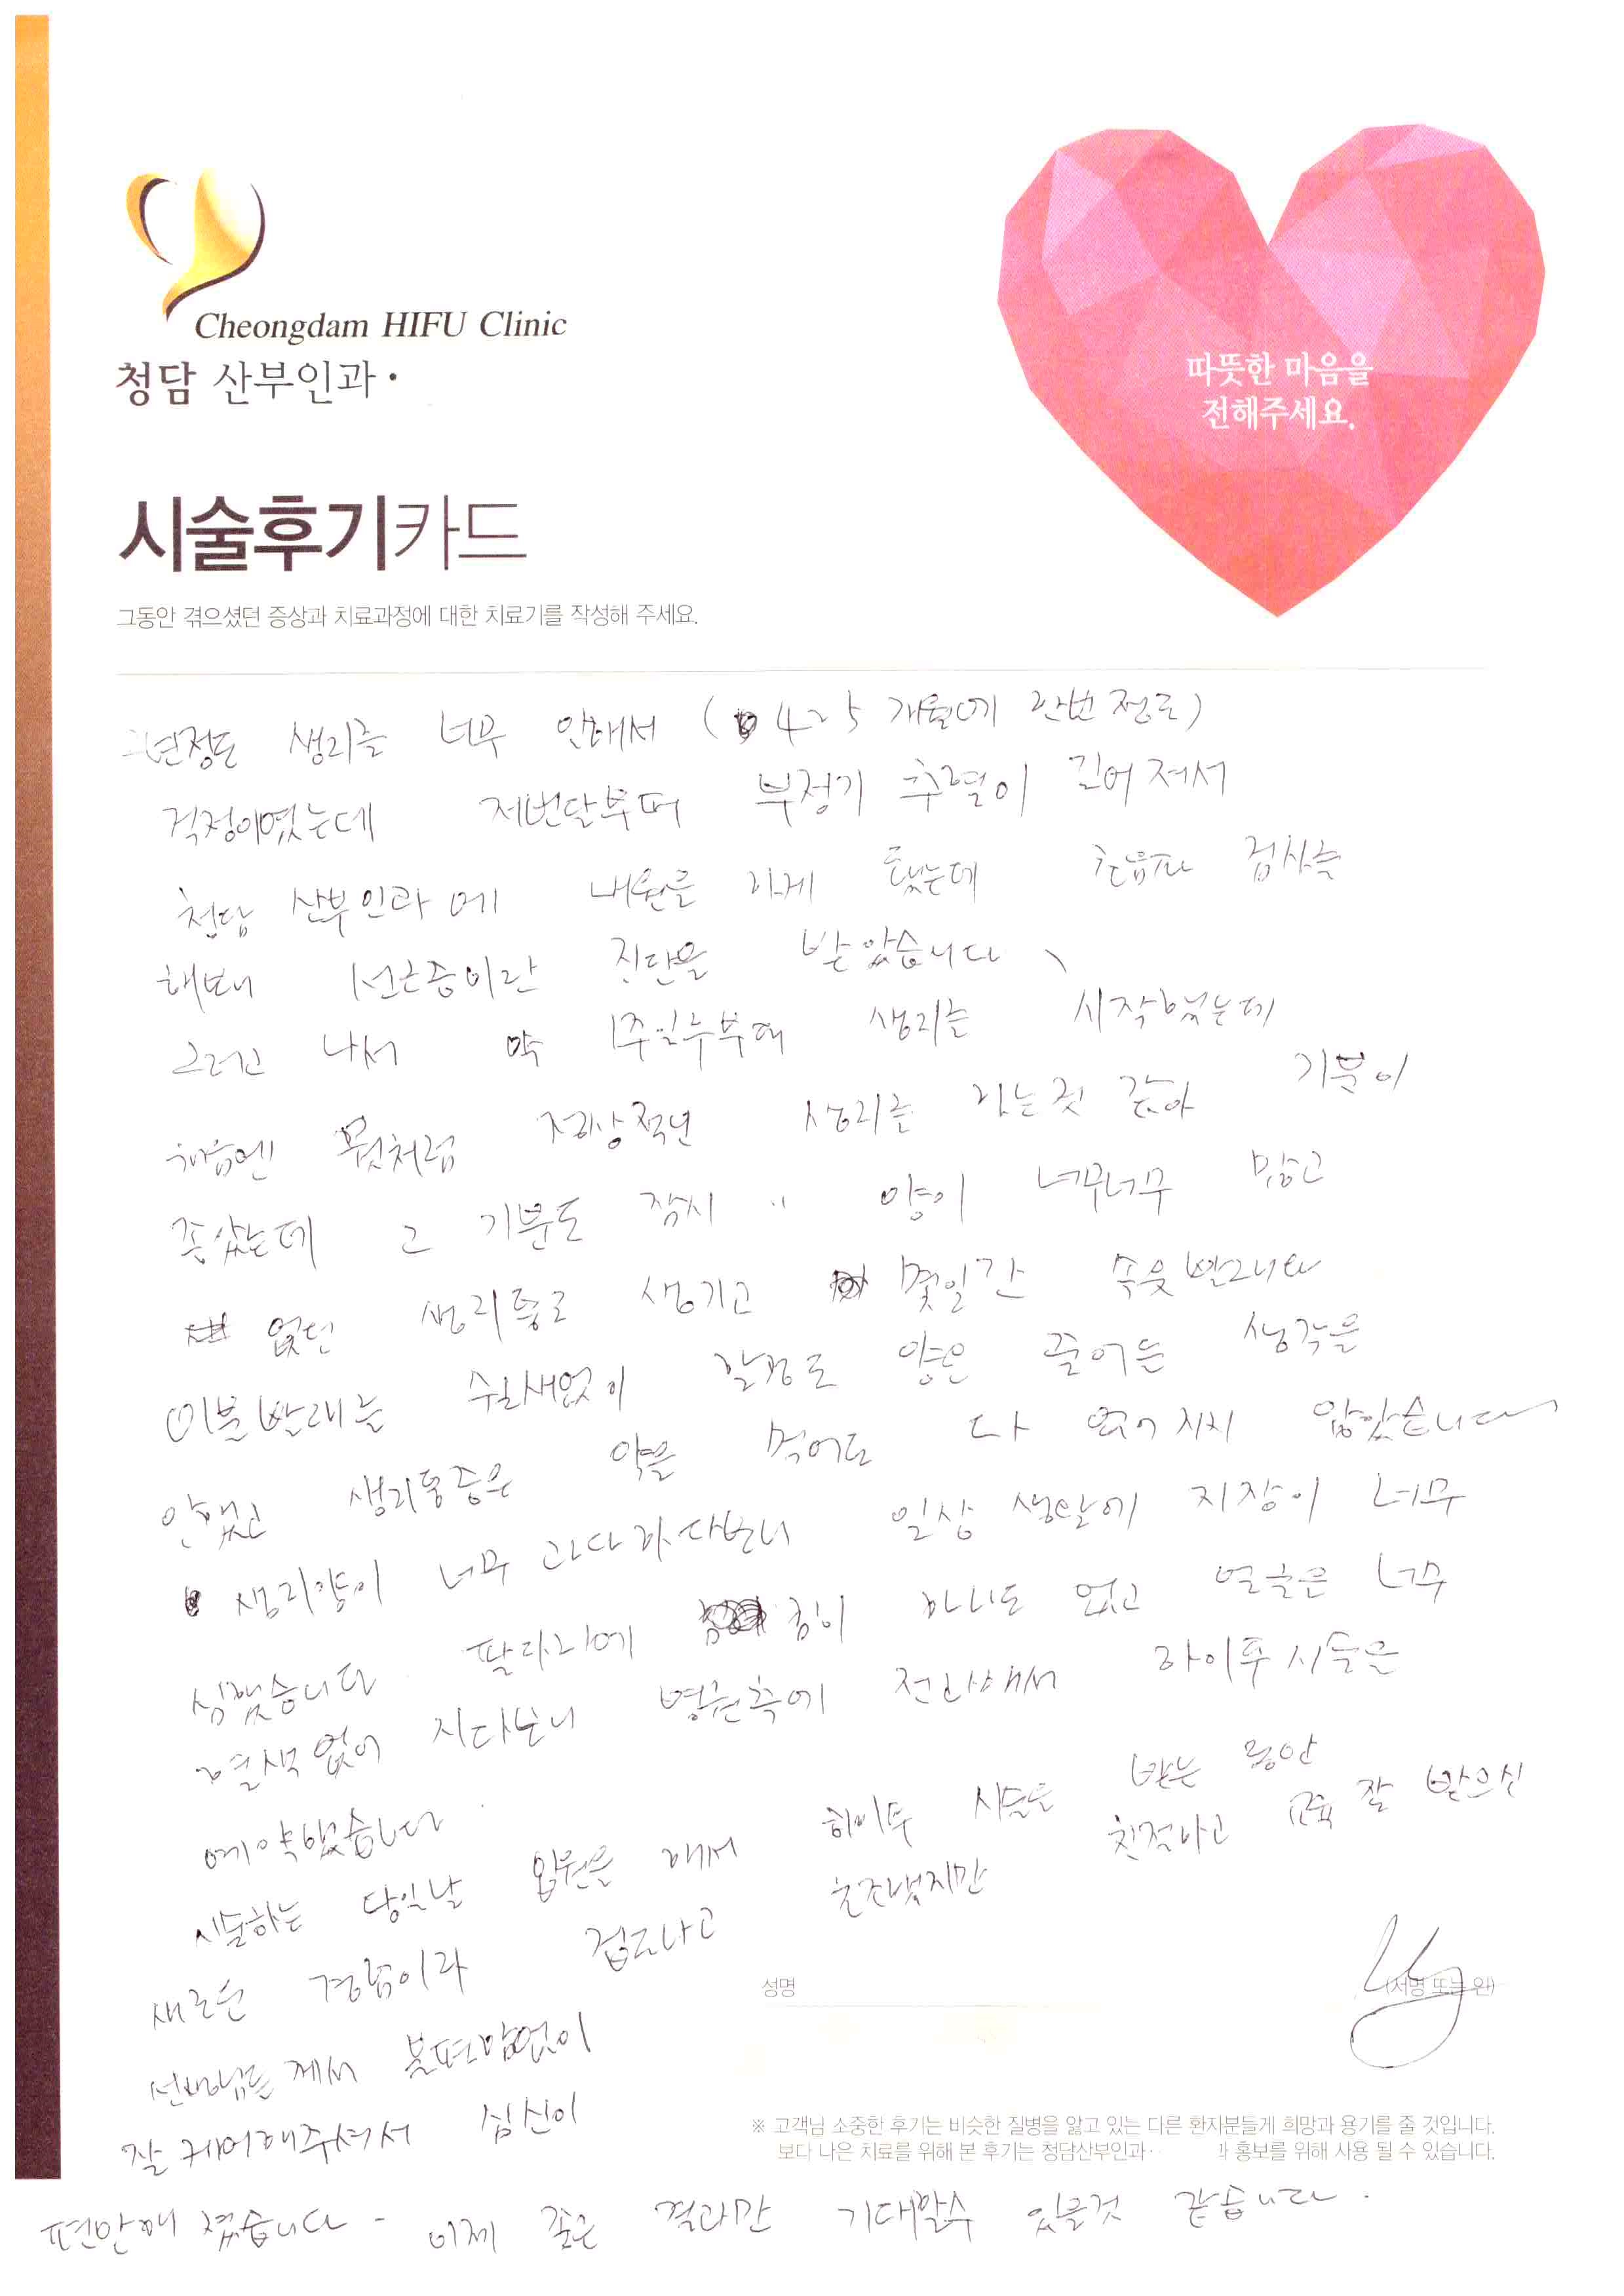 Cheongdam HIFU Clinic
청담 산부인과·
따뜻한 마음을
전해주세요.
시술후기카드
그동안 겪으셨던 증상과 치료과정에 대한 치료기를 작성해 주세요.
년정도 생리를 너무 안해서 ( 4~5 개월에 한번 정도)
걱정이였는데 저번달부터 부정기 출혈이 길어져서
청담 산부인과에 내원을 하게 됐는데 초음파 검사를
해보니 선근증이란 진단을 받았습니다
그러고 나서 약 1주일후부터 생리를 시작했는데
처음엔 정상적인 생리를 하는것 같아 기분이
좋았는데 그 기분도 잠시 .. 양이 너무너무 많고
없던 생리통도 생기고 몇일간 속옷빨래며
이불빨래를 쉴새없이 할정도로 양은 줄어든 생각을
안했고 생리통증은 약을 먹어도 다 없어지지 않았습니다
생리양이 너무 과다하다보니 일상 생활에 지장이 너무
심했습니다 팔다리에 힘이 하나도 없고 얼굴은 너무
혈색 없어 지다보니 병원측에 전화해서 하이푸 시술을
예약했습니다.
시술하는 당일날 입원을 해서 하이푸 시술을 받는 동안
새로운 경험이라 겁도나고 긴장했지만 친절하고 교육 잘 받으신
선생님들께서 불편함없이
잘 케어해주셔서 심신이
편안해 졌습니다. 이제 좋은 결과만 기대할수 있을것 같습니다.
성명
(서명 또는 인)
※ 고객님 소중한 후기는 비슷한 질병을 앓고 있는 다른 환자분들게 희망과 용기를 줄 것입니다.
보다 나은 치료를 위해 본 후기는 청담산부인과·· 과 홍보를 위해 사용 될 수 있습니다.